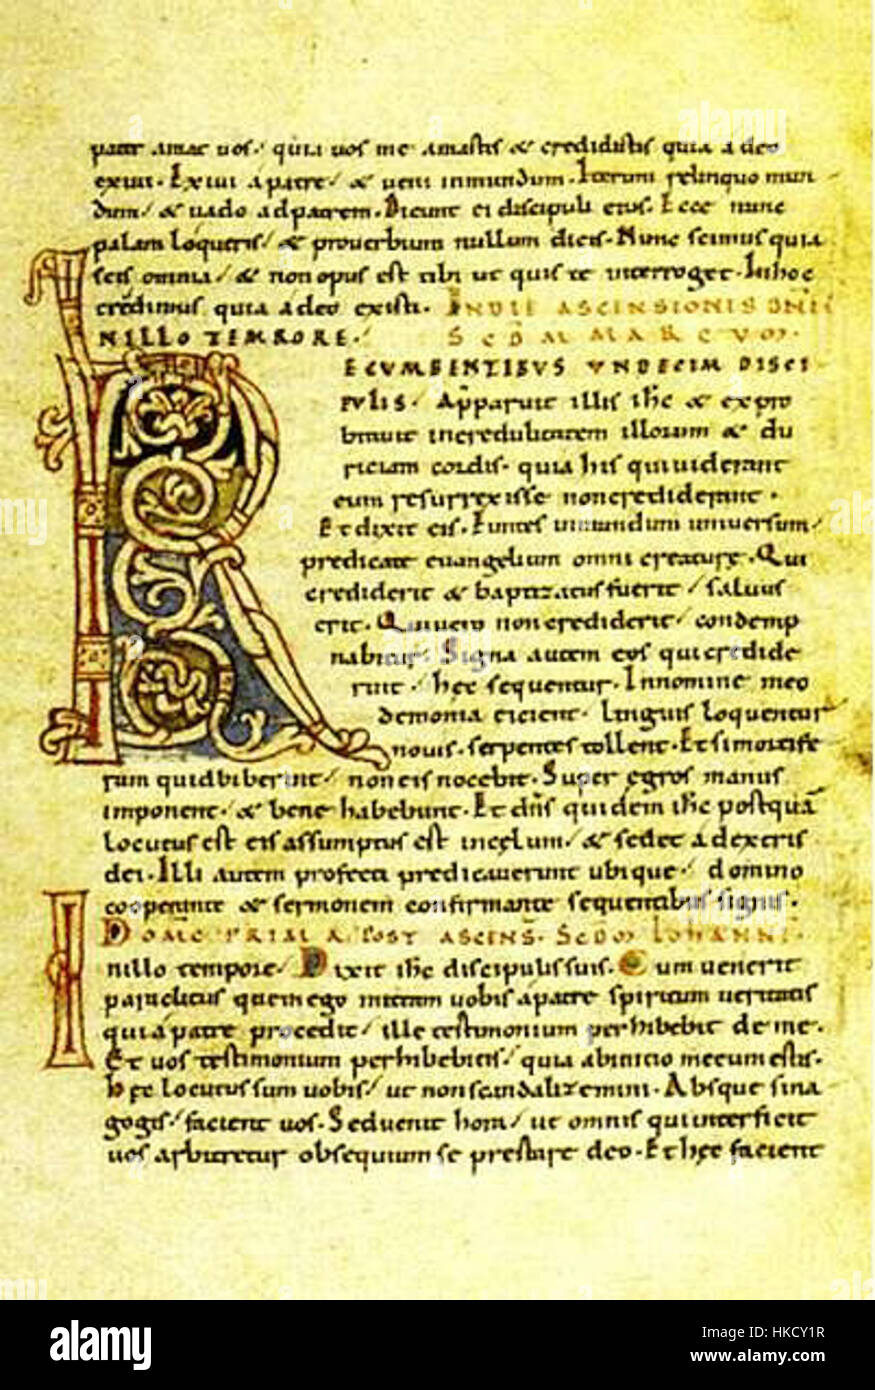 pater amat uos. quia uos me amastis & credidistis quia a deo
exiui. Exiui a patre / & ueni inmundum. Iterum relinquo mun
dum / & uado adpatrem. Dicunt ei discipuli eius. Ecce nunc
palam loqueris / & prouerbium nullum dicis. Nunc scimus quia
scis omnia / & non opus est tibi ut quis te interroget. Inhoc
credimus quia a deo existi. IN DIE ASCENSIONIS DNI
N ILLO TEMPORE. SCDM MARCUM.
RECUMBENTIBUS UNDECIM DISCI
PULIS. Apparuit illis ihc & expro
brauit incredulitatem illorum & du
riciam cordis. quia his quiuiderant
eum resurrexisse noncrediderant.
Et dixit eis. Euntes inmundum uniuersum /
predicate euangelium omni creature. Qui
crediderit & baptizatus fuerit / saluus
erit. Quiuero noncrediderit / condemp
nabitur. Signa autem eos quicredide
rint / hęc sequentur. Innomine meo
demonia eicient. linguis loquentur
nouis. serpentes tollent. Et simortife
rum quidbiberint / non eis nocebit. Super ęgros manus
imponent. & bene habebunt. Et dns quidem ihc postquā
locutus est eis assumptus est incęlum / & sedet adexteris
dei. Illi autem profecti predicauerunt ubique / domino
cooperante & sermonem confirmante sequentibus signis.
DOMC PRIMA POST ASCENS. SCDM IOHANNE.
IN illo tempore. Dixit ihc discipulis suis. Cum uenerit
paraclitus quem ego mittam uobis apatre spiritum ueritatis
qui apatre procedit / ille testimonium perhibebit de me.
Et uos testimonium perhibebitis / quia abinitio mecum estis.
Hęc locutus sum uobis / ut non scandalizemini. Absque sina
gogis / facient uos. Seduenit hora / ut omnis quiinterficit
uos arbitretur obsequium se prestare deo. Et hęc facient
alamy
Image ID: HKCY1R
www.alamy.com